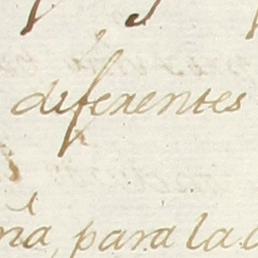 diferentes
para la